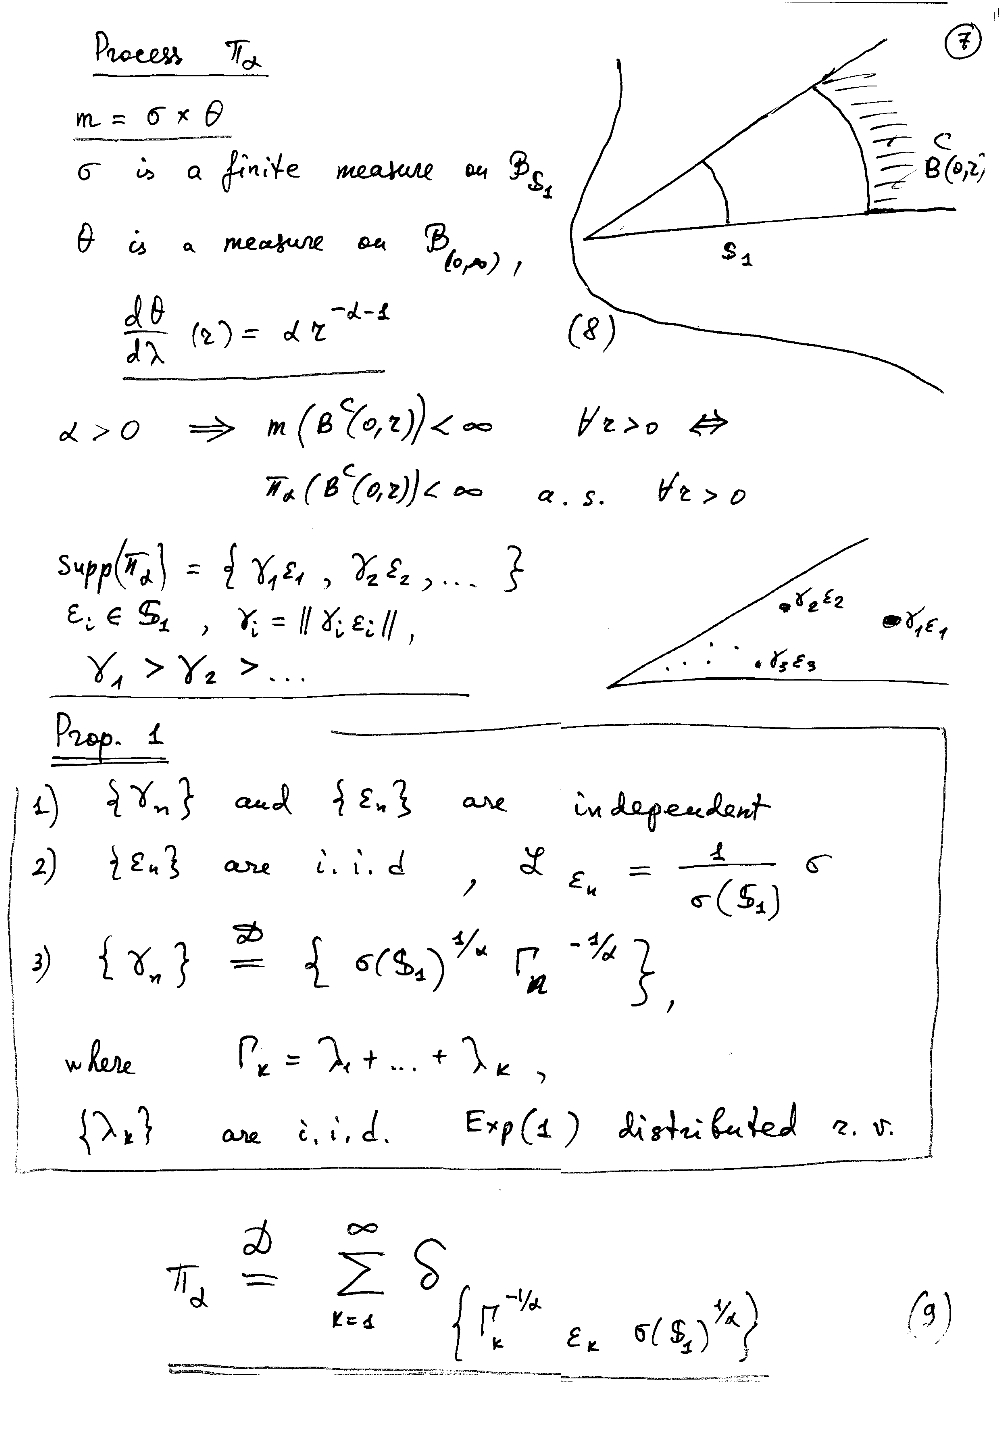 7
Process π_α
m = σ × θ
σ is a finite measure on B_{𝕊_1}
θ is a measure on B_{(0,∞)},
dθ/dλ (r) = α r^{-α-1}
(8)
𝕊_1
B^C(0,r)
α > 0 ⟹ m(B^C(0,r)) < ∞ ∀r>0 ⇔
π_α(B^C(0,r)) < ∞ a.s. ∀r>0
supp(π_α) = { γ_1ε_1, γ_2ε_2, ... }
ε_i ∈ 𝕊_1, γ_i = ||γ_iε_i||,
γ_1 > γ_2 > ...
γ_2ε_2
γ_1ε_1
γ_3ε_3
Prop. 1
1) {γ_n} and {ε_n} are independent
2) {ε_n} are i.i.d, ℒ_{ε_n} = 1/σ(𝕊_1) σ
3) {γ_n} =^𝒟 { σ(𝕊_1)^{1/α} Γ_n^{-1/α} },
where Γ_k = λ_1 + ... + λ_k,
{λ_k} are i.i.d. Exp(1) distributed r.v.
π_α =^𝒟 ∑_{k=1}^∞ δ_{{Γ_k^{-1/α} ε_k σ(𝕊_1)^{1/α}}} (9)